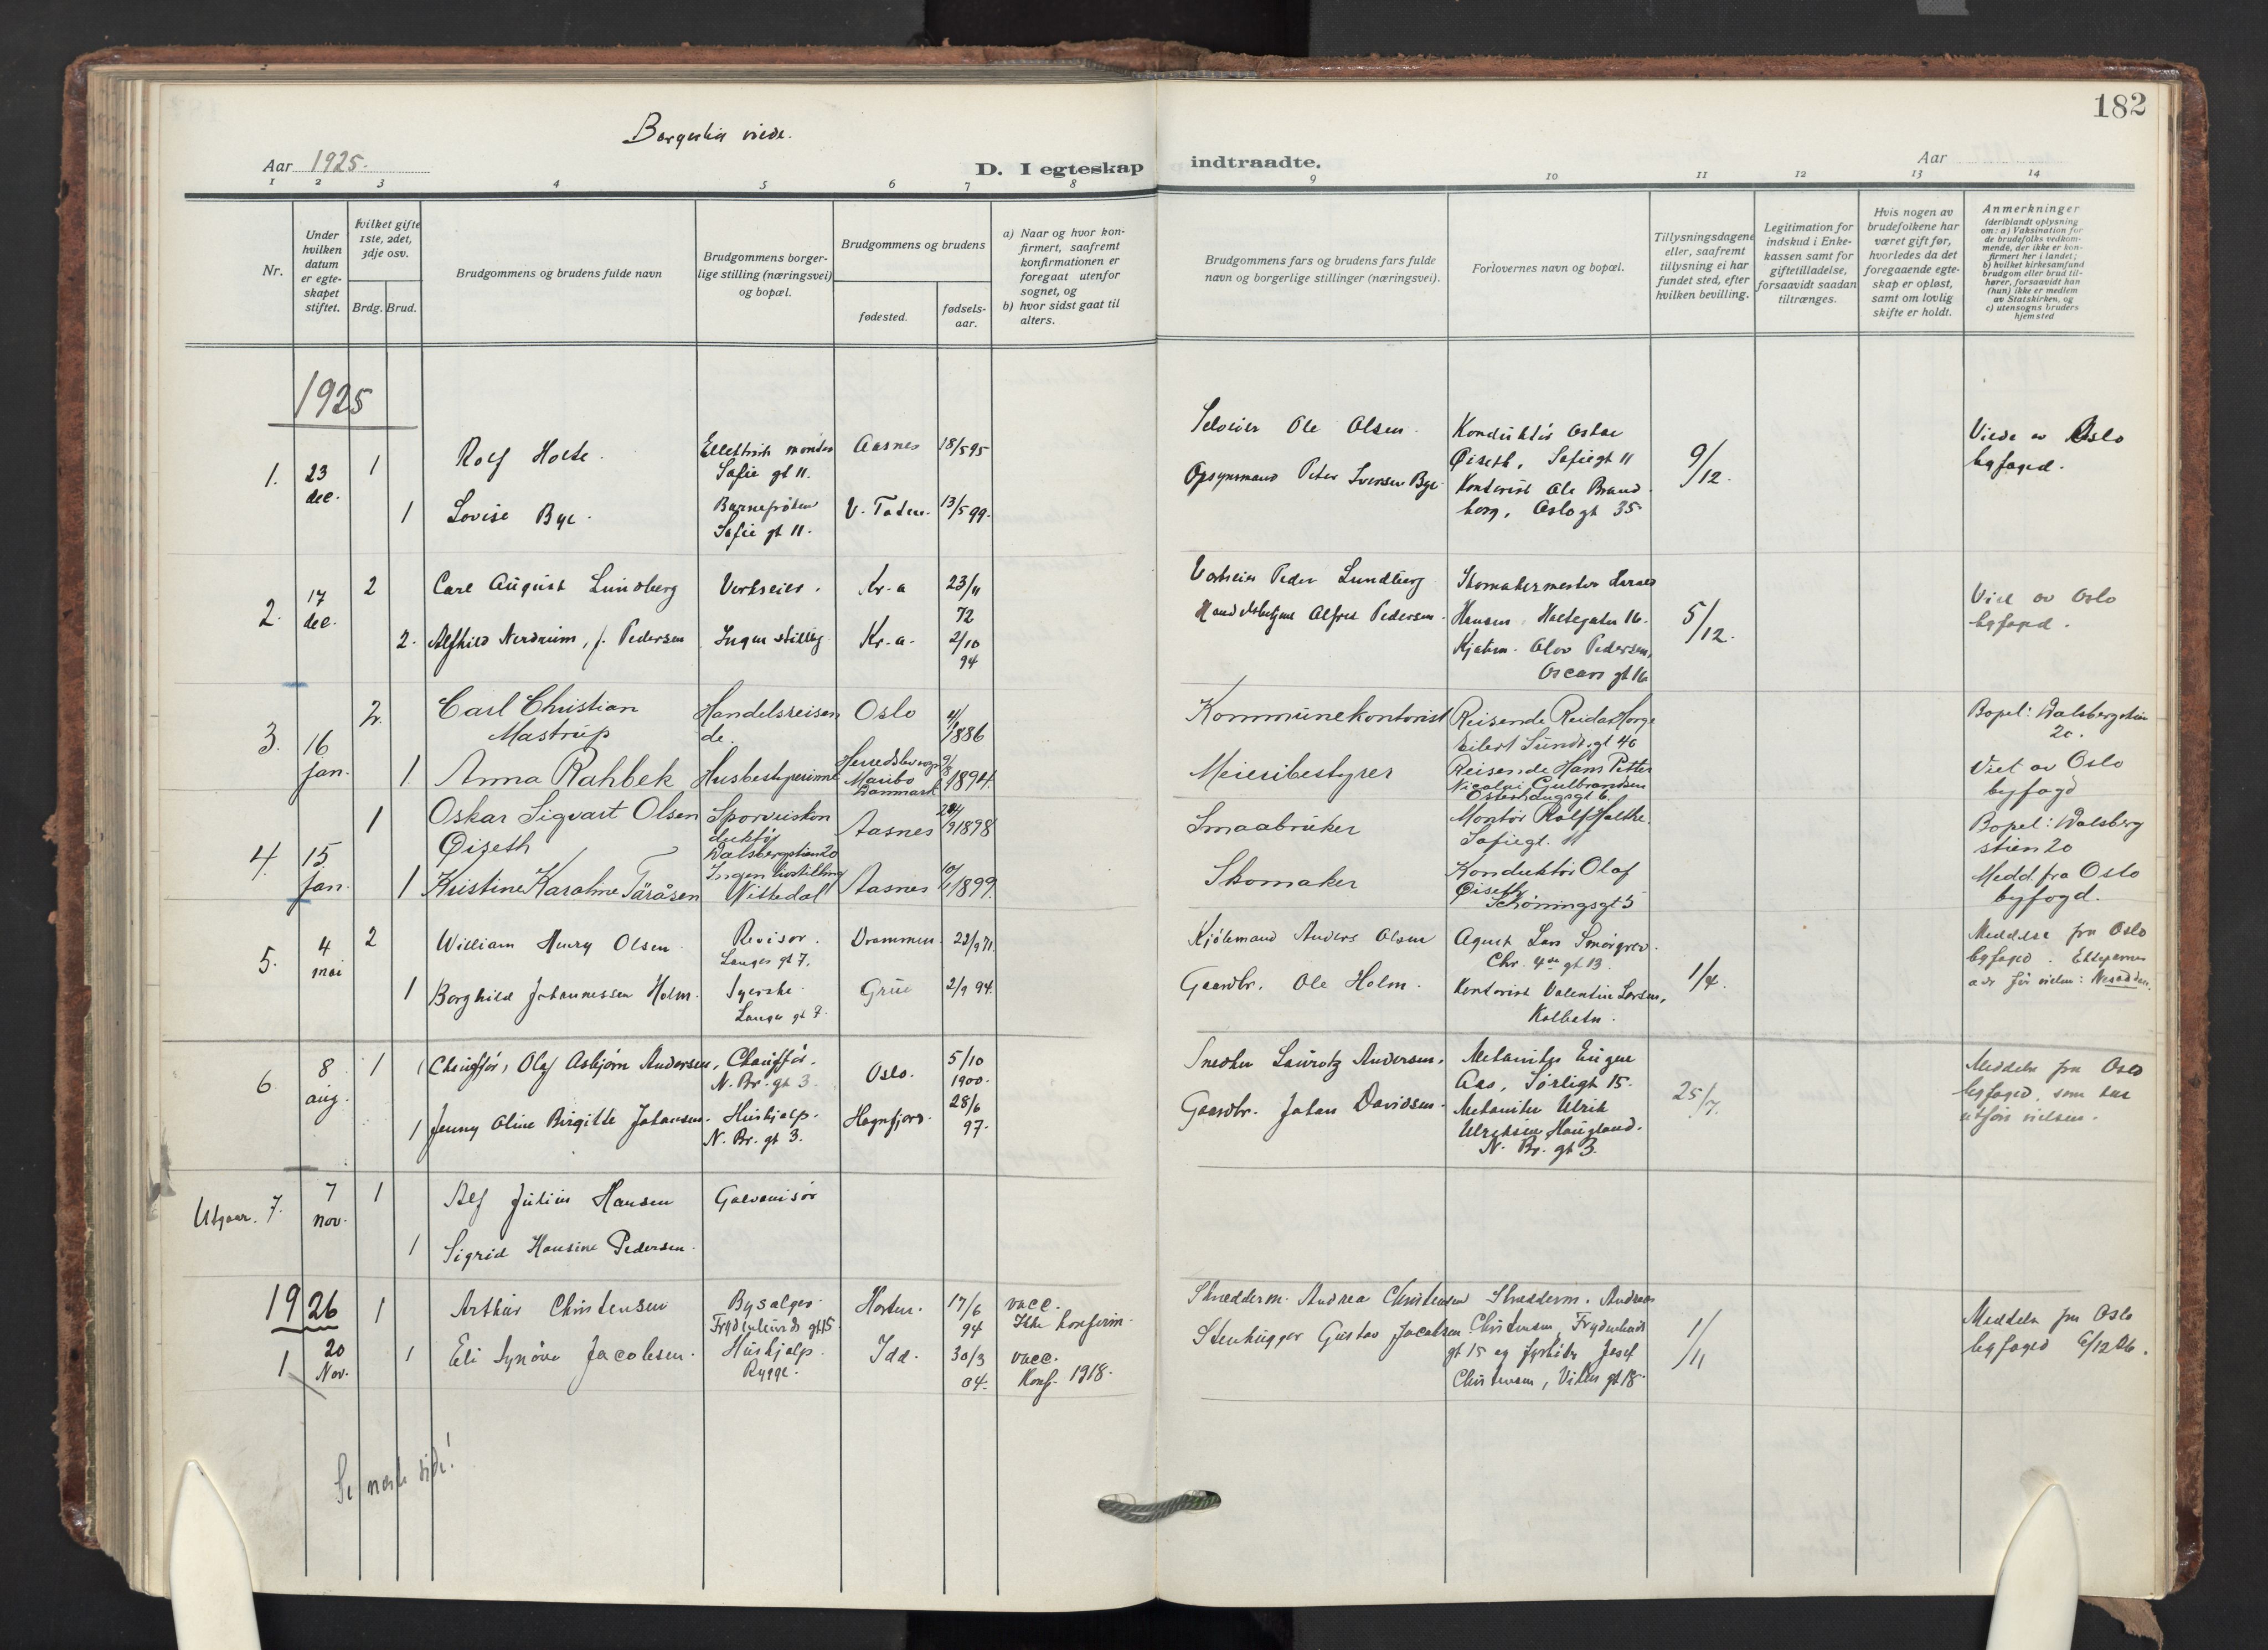 182
Borgerlig viede.
Aar 1925.
D. I egteskap indtraadte.
Aar
1 2 3 4 5 6 7 8 9 10 11 12 13 14
Nr.
Under hvilken datum er egteskapet stiftet.
hvilket gifte 1ste, 2det, 3dje osv.
Brdg. Brud.
Brudgommens og brudens fulde navn
Brudgommens borgerlige stilling (næringsvei) og bopæl.
Brudgommens og brudens
fødested.
fødselsaar.
a) Naar og hvor konfirmert, saafremt konfirmationen er foregaat utenfor sognet, og
b) hvor sidst gaat til alters.
Brudgommens fars og brudens fars fulde navn og borgerlige stillinger (næringsvei).
Forlovernes navn og bopæl.
Tillysningsdagene eller, saafremt tillysning ei har fundet sted, efter hvilken bevilling.
Legitimation for indskud i Enkekassen samt for giftetilladelse, forsaavidt saadan tiltrænges.
Hvis nogen av brudefolkene har været gift før, hvorledes da det foregaaende egteskap er opløst, samt om lovlig skifte er holdt.
Anmerkninger
(deriblandt oplysning om: a) Vaksination for de brudefolks vedkommende, der ikke er konfirmert her i landet;
b) hvilket kirkesamfund brudgom eller brud tilhører, forsaavidt han (hun) ikke er medlem av Statskirken, og
c) utensogns bruders hjemsted
1925
1. 23 dec. 1 Rolf Holte. Elektrisk montør Sofie gt 11. Aasnes 18/5 95
Selveier Ole Olsen. Konduktør Oskar Øiseth, Sofiegt 11
9/12.
Viede av Oslo byfoged.
1 Lovise Bye. Sofie gt 11. V. Toten. 13/5 99.
Opsynsmand Peter Iversen Bye. Kontorist Ole Brandborg, Oslogt 35
2. 17 dec. 2 Carl August Lundberg Verkseier. Kr.a 23/11 72
Verkseier Peder Lundberg Skomakermester
Hansen, Holtegaten 16.
5/12.
Viet av Oslo byfoged.
2. Alfhild Nerdrum, f. Pedersen Ingen stilling Kr.a. 2/10 94
Handelsbetjent Alfred Pedersen.
Kjøbm. Olav Pedersen, Oscars gt 16
3. 16 jan. 2. Carl Christian Mastrup Handelsreisende. Oslo 4/1 1886
Kommunekontorist Reisende Reidar Horge Eilert Sundts gt 40
Bopel: Walsbergstien 20.
1. Anna Rahbek Husbestyrerinne Maribo Danmark 9/8 1894.
Meieribestyrer Reisende Hans Petter Nicolai Gulbrandsen Osterhausgt 6.
Viet av Oslo byfogd
4. 15 jan. 1 Oskar Sigvart Olsen Øiseth Sporveiskonduktør Walsbergstien 20 Aasnes 1898
Smaabruker Montør Rolf Holthe. Sofiegt. 11
Bopel: Walsbergstien 20
1 Kristine Karoline Tåråsen Ingen livstilling Nittedal Aasnes 10/1 1899.
Skomaker Konduktør Olaf Øiseth Schöningsgt 5
Medd. fra Oslo byfogd.
5. 4 mai 2 William Henry Olsen. Revisor. Langes gt 7. Drammen. 22/9 71.
Kjølemand Anders Olsen Agent Lars Smørgrav. Chr. 4de gt 13.
1/4.
Meddelt fra Oslo byfoged. Ekteparets adr før vielsen: Nesodden.
1 Borghild Johannessen Holm. Syerske. Langes gt 7. Grue 2/9 94.
Gaardbr. Ole Holm. Kontorist Valentin Larsen, Kolbotn.
6. 8 aug. 1 Chauffør, Olaf Asbjørn Andersen, Chauffør. N. Br. gt 3. Oslo. 5/10 1900.
Snedker Lauritz Andersen. Mekaniker Eugen Aas, Sørligt 15.
25/7.
Meddelt fra Oslo byfoged, som har utført vielsen.
1 Jenny Oline Birgitte Johansen. Hushjælp. N. Br. gt 3. Hognfjord. 28/6 97.
Gaardbr. Johan Davidsen. Mekaniker Ulrik Ulriksen Haugland. N. Br. gt 3.
Utgaar. 7. 7 nov. 1 Alf Julius Hansen Galvanisør
1 Sigrid Hansine Pedersen.
1926
1 20 Nov. 1 Arthur Christensen Bysalger. Frydenlunds gt 15. Horten. 17/6 94 vacc. Ikke konfirm.
Skredderm. Andrea Christensen Skredderm. Andreas Christensen, Frydenlunds gt 15 og fyrbøter Josef Christensen, Vibes gt 18.
1/11
Meddelt fra Oslo byfoged 6/12 26.
1 Eli Synøve Jacobsen. Hushjælp. Rygge. Idd. 30/3 04. vacc. Konf. 1918.
Stenhugger Gustav Jacobsen.
Se neste side!